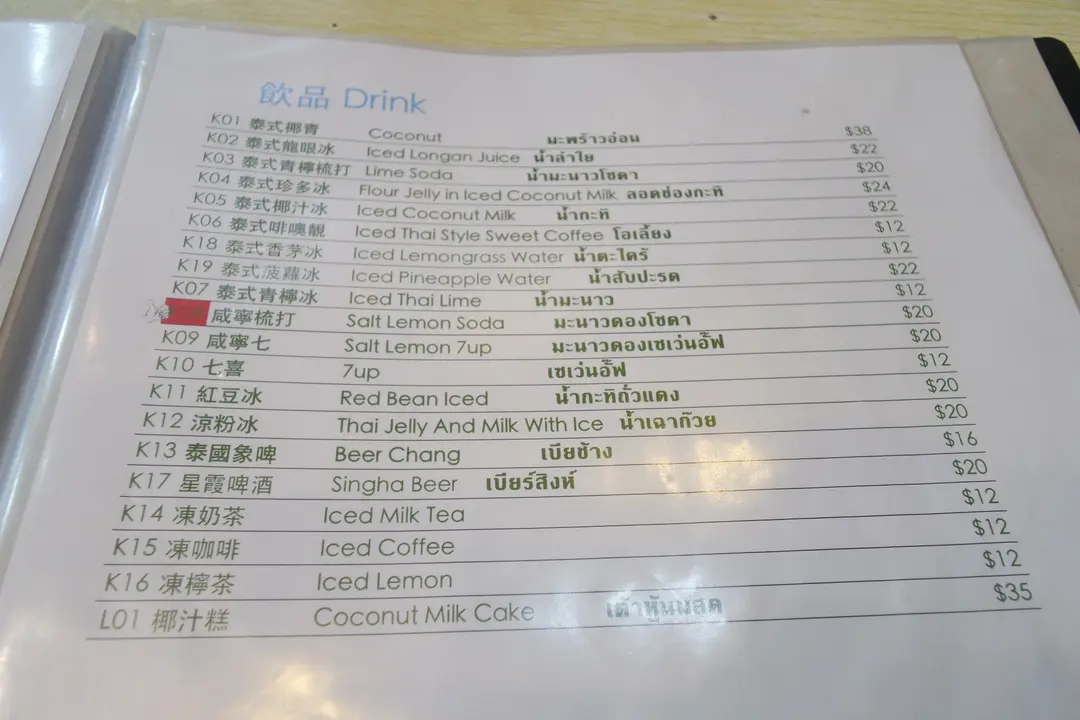 飲品 Drink
K01 泰式椰青 Coconut มะพร้าวอ่อน $38
K02 泰式龍眼冰 Iced Longan Juice น้ำลำใย $22
K03 泰式青檸梳打 Lime Soda น้ำมะนาวโซดา $20
K04 泰式珍多冰 Flour Jelly in Iced Coconut Milk ลอดช่องกะทิ $24
K05 泰式椰汁冰 Iced Coconut Milk น้ำกะทิ $22
K06 泰式啡噢靚 Iced Thai Style Sweet Coffee โอเลี้ยง $12
K18 泰式香茅冰 Iced Lemongrass Water น้ำตะไคร้ $12
K19 泰式菠蘿冰 Iced Pineapple Water น้ำสับปะรด $22
K07 泰式青檸冰 Iced Thai Lime น้ำมะนาว $12
咸寧梳打 Salt Lemon Soda มะนาวดองโซดา $20
K09 咸寧七 Salt Lemon 7up มะนาวดองเซเว่นอั๊ฟ $20
K10 七喜 7up เซเว่นอั๊ฟ $12
K11 紅豆冰 Red Bean Iced น้ำกะทิถั่วแดง $20
K12 涼粉冰 Thai Jelly And Milk With Ice น้ำเฉาก๊วย $20
K13 泰國象啤 Beer Chang เบียช้าง $16
K17 星霞啤酒 Singha Beer เบียร์สิงห์ $20
K14 凍奶茶 Iced Milk Tea $12
K15 凍咖啡 Iced Coffee $12
K16 凍檸茶 Iced Lemon $12
L01 椰汁糕 Coconut Milk Cake เต้าหู้นมสด $35